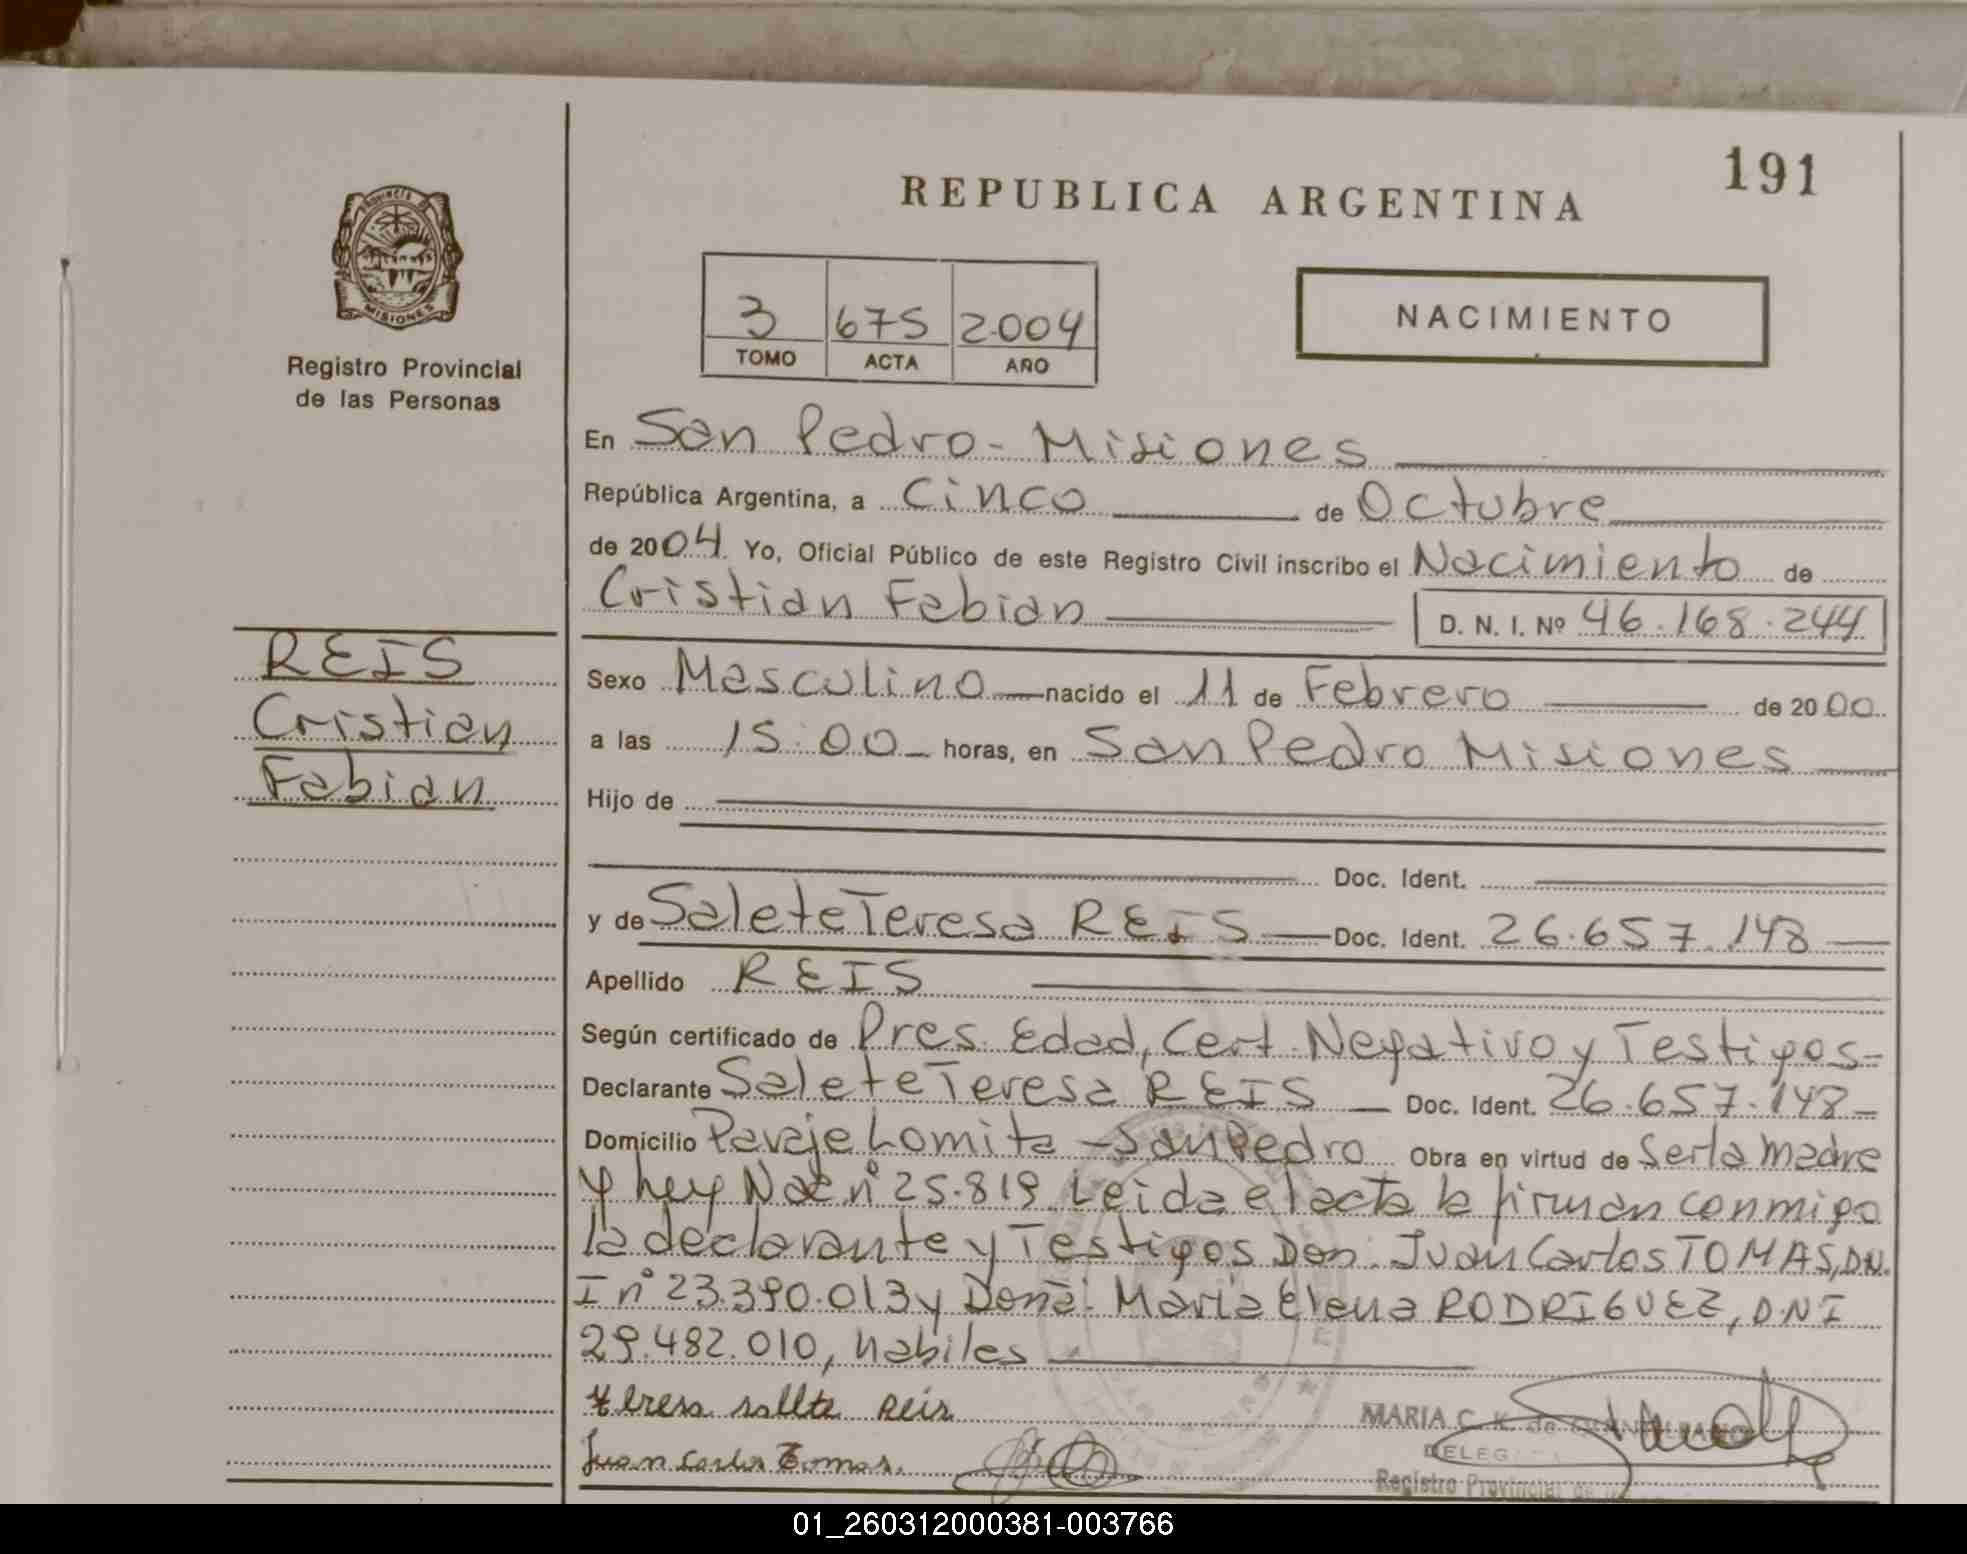 191
REPUBLICA ARGENTINA
PROVINCIA D
MISIONES
Registro Provincial
de las Personas
3 675 2004
TOMO ACTA AÑO
NACIMIENTO
En San Pedro - Misiones
República Argentina, a Cinco de Octubre
de 2004. Yo, Oficial Público de este Registro Civil inscribo el Nacimiento de
Cristian Fabian D. N. I. Nº 46.168.244
REIS
Cristian
Fabian
Sexo Masculino nacido el 11 de Febrero de 2000
a las 15:00 horas, en San Pedro Misiones
Hijo de
Doc. Ident.
y de Salete Teresa REIS Doc. Ident. 26.657.148
Apellido REIS
Según certificado de Pres. Edad, Cert. Negativo y Testigos=
Declarante Salete Teresa REIS Doc. Ident. 26.657.148
Domicilio Paraje Lomita - San Pedro Obra en virtud de Ser la madre
y ley Nac nº 25.819. Leida el acta la firman conmigo
la declarante y Testigos Don: Juan Carlos TOMAS, DN.
I nº 23.390.013 y Doña: Maria Elena RODRIGUEZ, DNI
29.482.010, habiles
teresa sallte Reis
Juan Carlos Tomas.
MARIA C. K. de
DELEG
Registro Provincial de
01_260312000381-003766